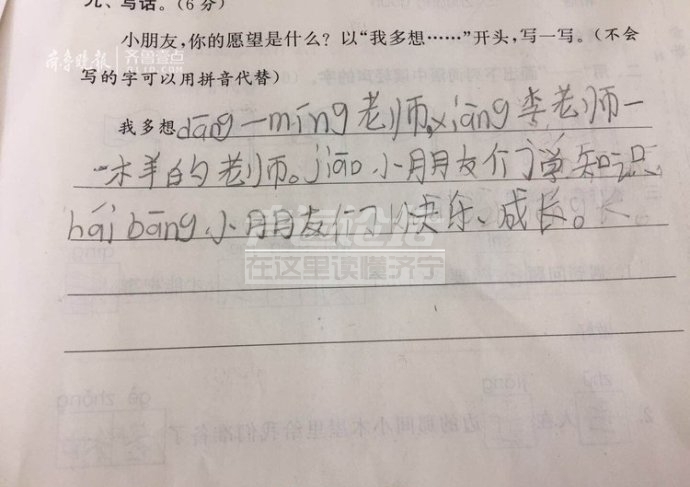 九、写话。(6分)
齐鲁晚报 齐鲁壹点
小朋友，你的愿望是什么？以“我多想……”开头，写一写。（不会
写的字可以用拼音代替）
我多想dāng一míng老师,xiàng李老师一
样的老师。jiāo小朋友们学知识
hái bāng小朋友们快乐、成长。长
在这里读懂济宁